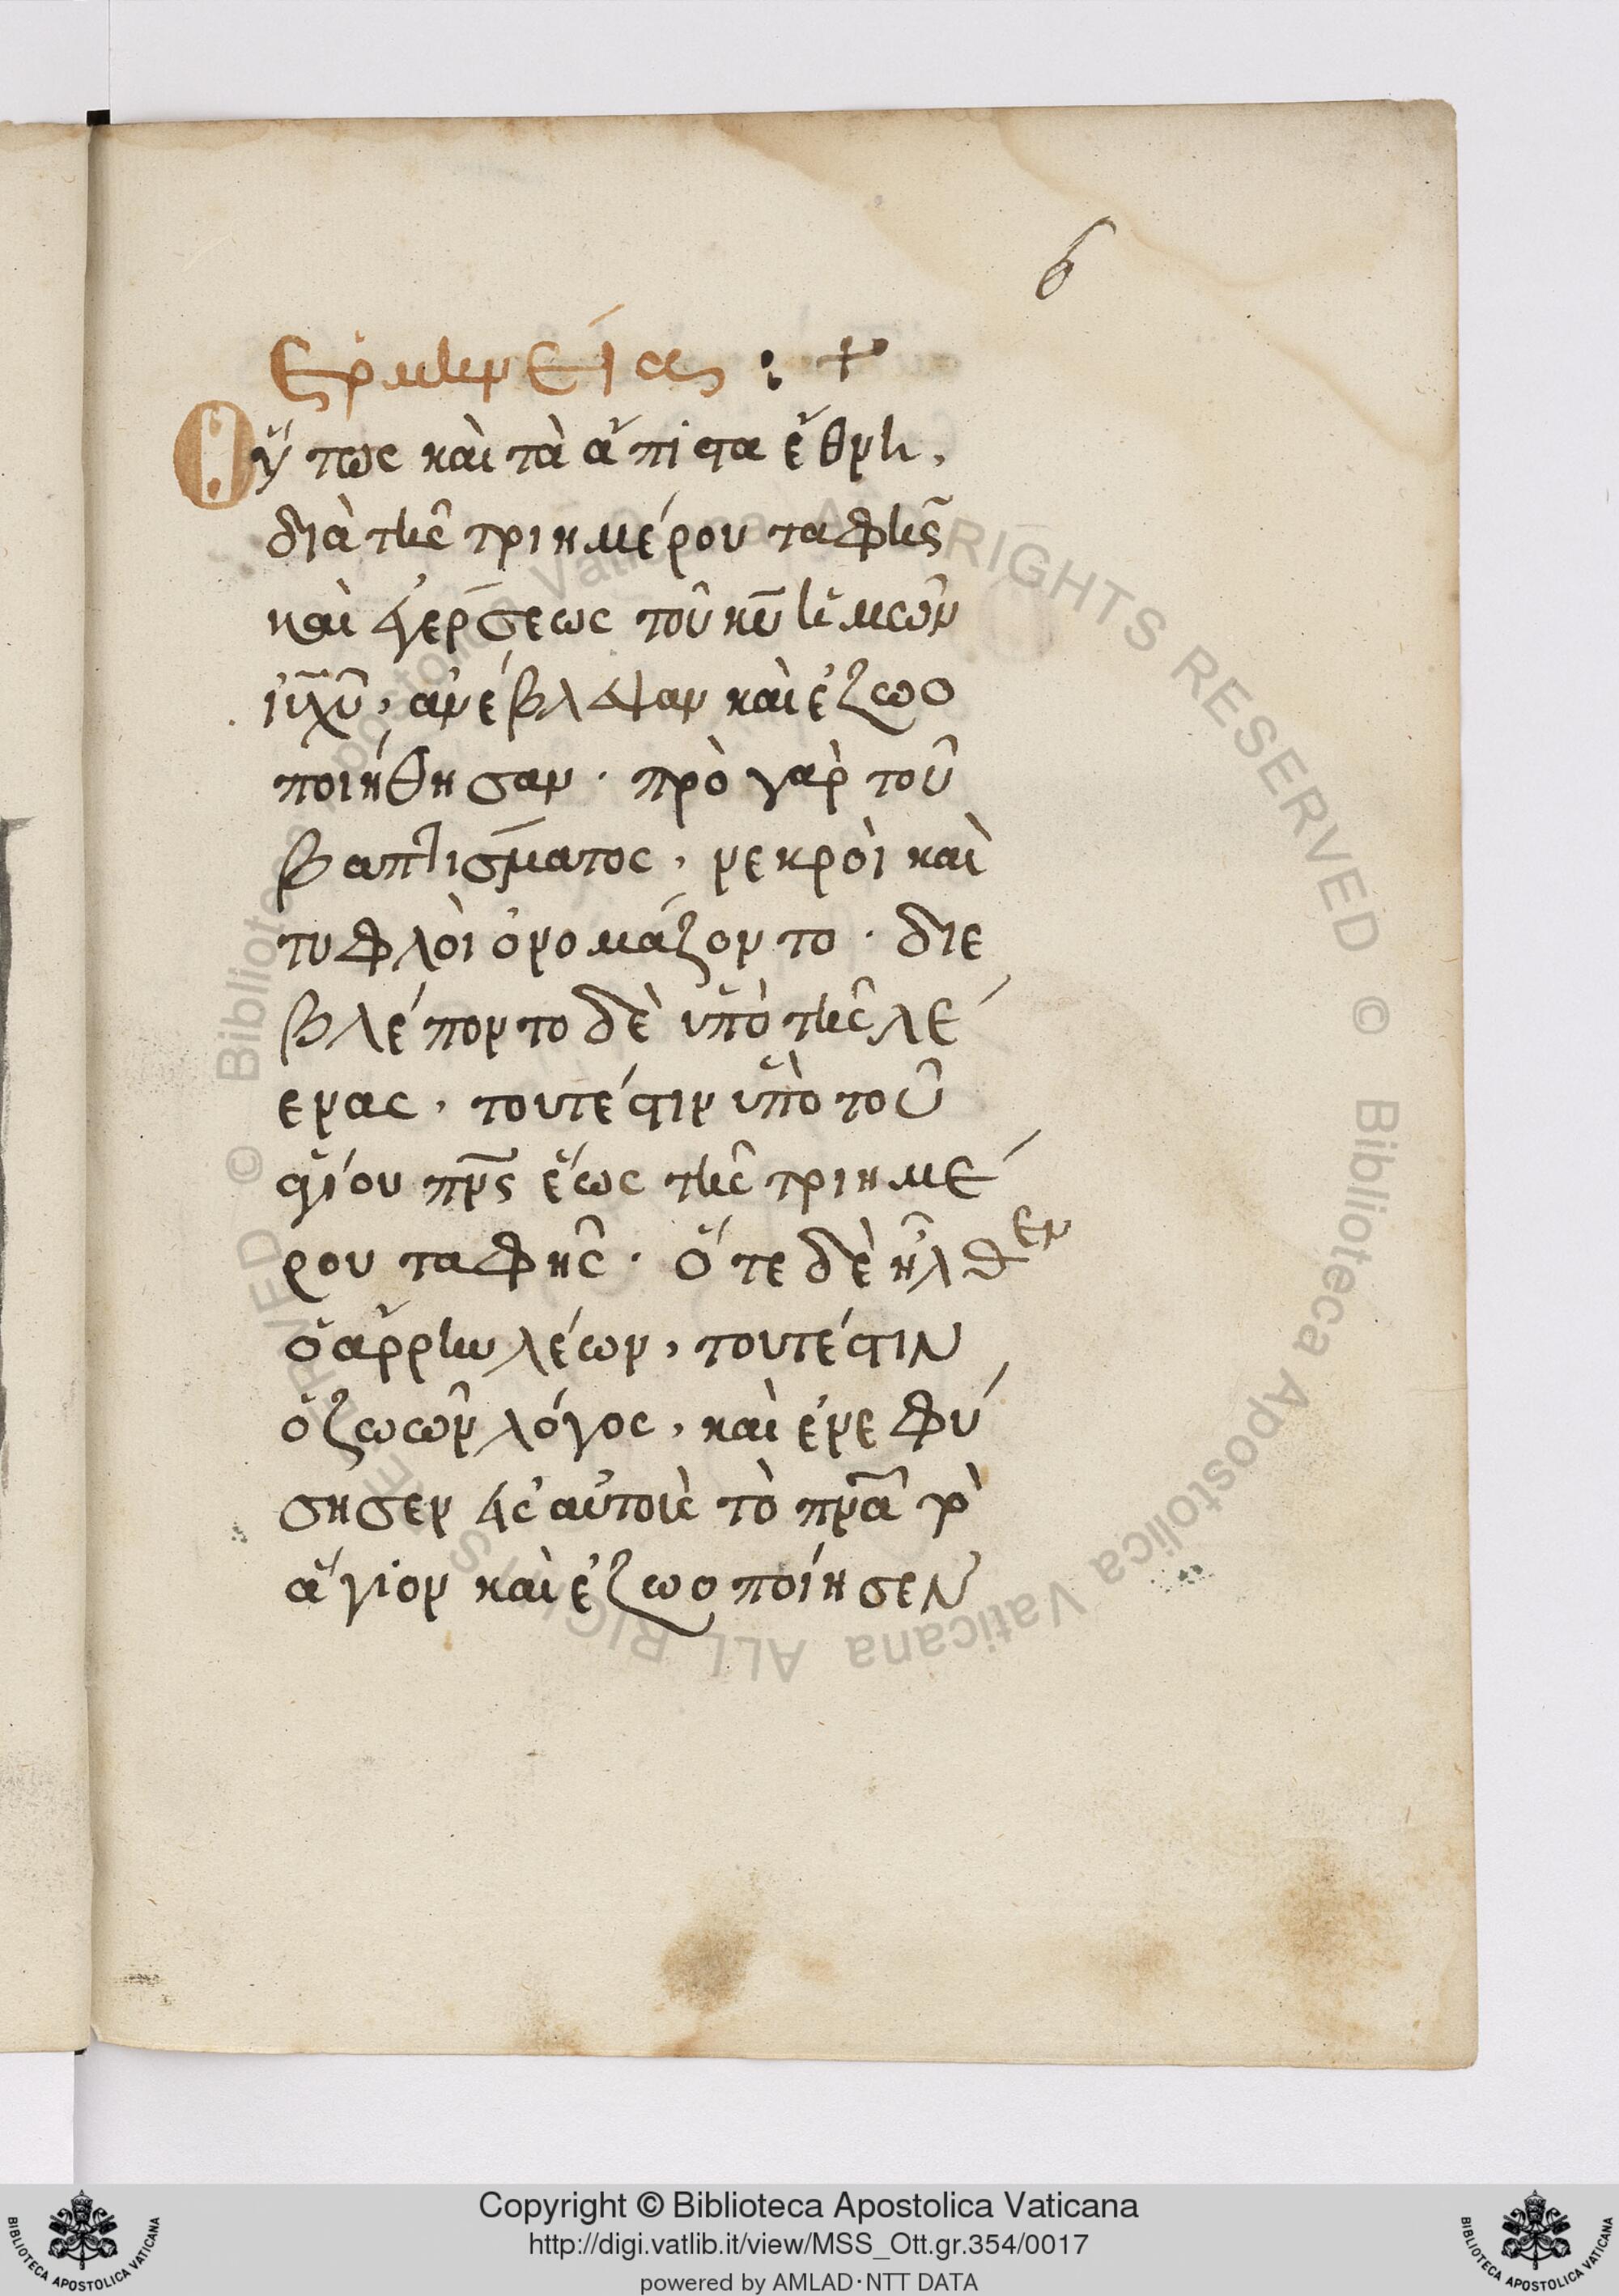 6
Ερμηνεία :+
Οὕτως καὶ τὰ ἄπιστα ἔθνη,
διὰ τῆς τριημέρου ταφῆς
καὶ ἐγέρσεως τοῦ κῦ ἡμῶν
ἰῦ χῦ, ἀνέβλεψαν καὶ ἐζωο
ποιήθησαν· πρὸ γαρ τοῦ
βαπτίσματος, νεκρὸι καὶ
τυφλὸι ὀνομάζοντο· διε
βλέποντο δὲ ὑπὸ τῆς λε
ενας, τουτέστιν ὑπὸ τοῦ
ἁγίου πνς ἕως τῆς τριημέ
ρου ταφῆς· ὅτε δὲ ἦλθεν
ὁ ἄρρην λέων, τουτέστιν
ὁ ζωῶν λόγος, καὶ ἐνεφύ
σησεν εἰς αὐτοὺς τὸ πνᾶ τὸ
ἅγιον καὶ ἐζωοποίησεν
Copyright © Biblioteca Apostolica Vaticana
http://digi.vatlib.it/view/MSS_Ott.gr.354/0017
powered by AMLAD·NTT DATA
BIBLIOTECA APOSTOLICA VATICANA
BIBLIOTECA APOSTOLICA VATICANA
© Biblioteca Apostolica Vaticana ALL RIGHTS RESERVED © Biblioteca Apostolica Vaticana ALL RIGHTS RESERVED